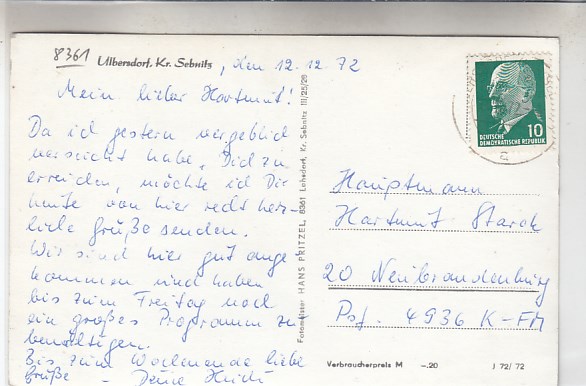 8361
Ulbersdorf, Kr. Sebnitz, den 12.12.72
Mein lieber Hartmut!
Da ich gestern vergeblich
versucht habe, Dich zu
erreichen, möchte ich Dir
heute von hier recht herz-
liche Grüße senden.
Wir sind hier gut ange-
kommen und haben
bis zum Freitag noch
ein großes Programm zu
bewältigen.
Bis zum Wochenende liebe
Grüße - Deine Heidi
Fotomeister HANS PRITZEL, 8361 Lohsdorf, Kr. Sebnitz III/25/29
10
DEUTSCHE
DEMOKRATISCHE REPUBLIK
Hauptmann
Hartmut Starck
20 Neubrandenburg
Psf. 4936 K-FM
Verbraucherpreis M -.20 J 72/72